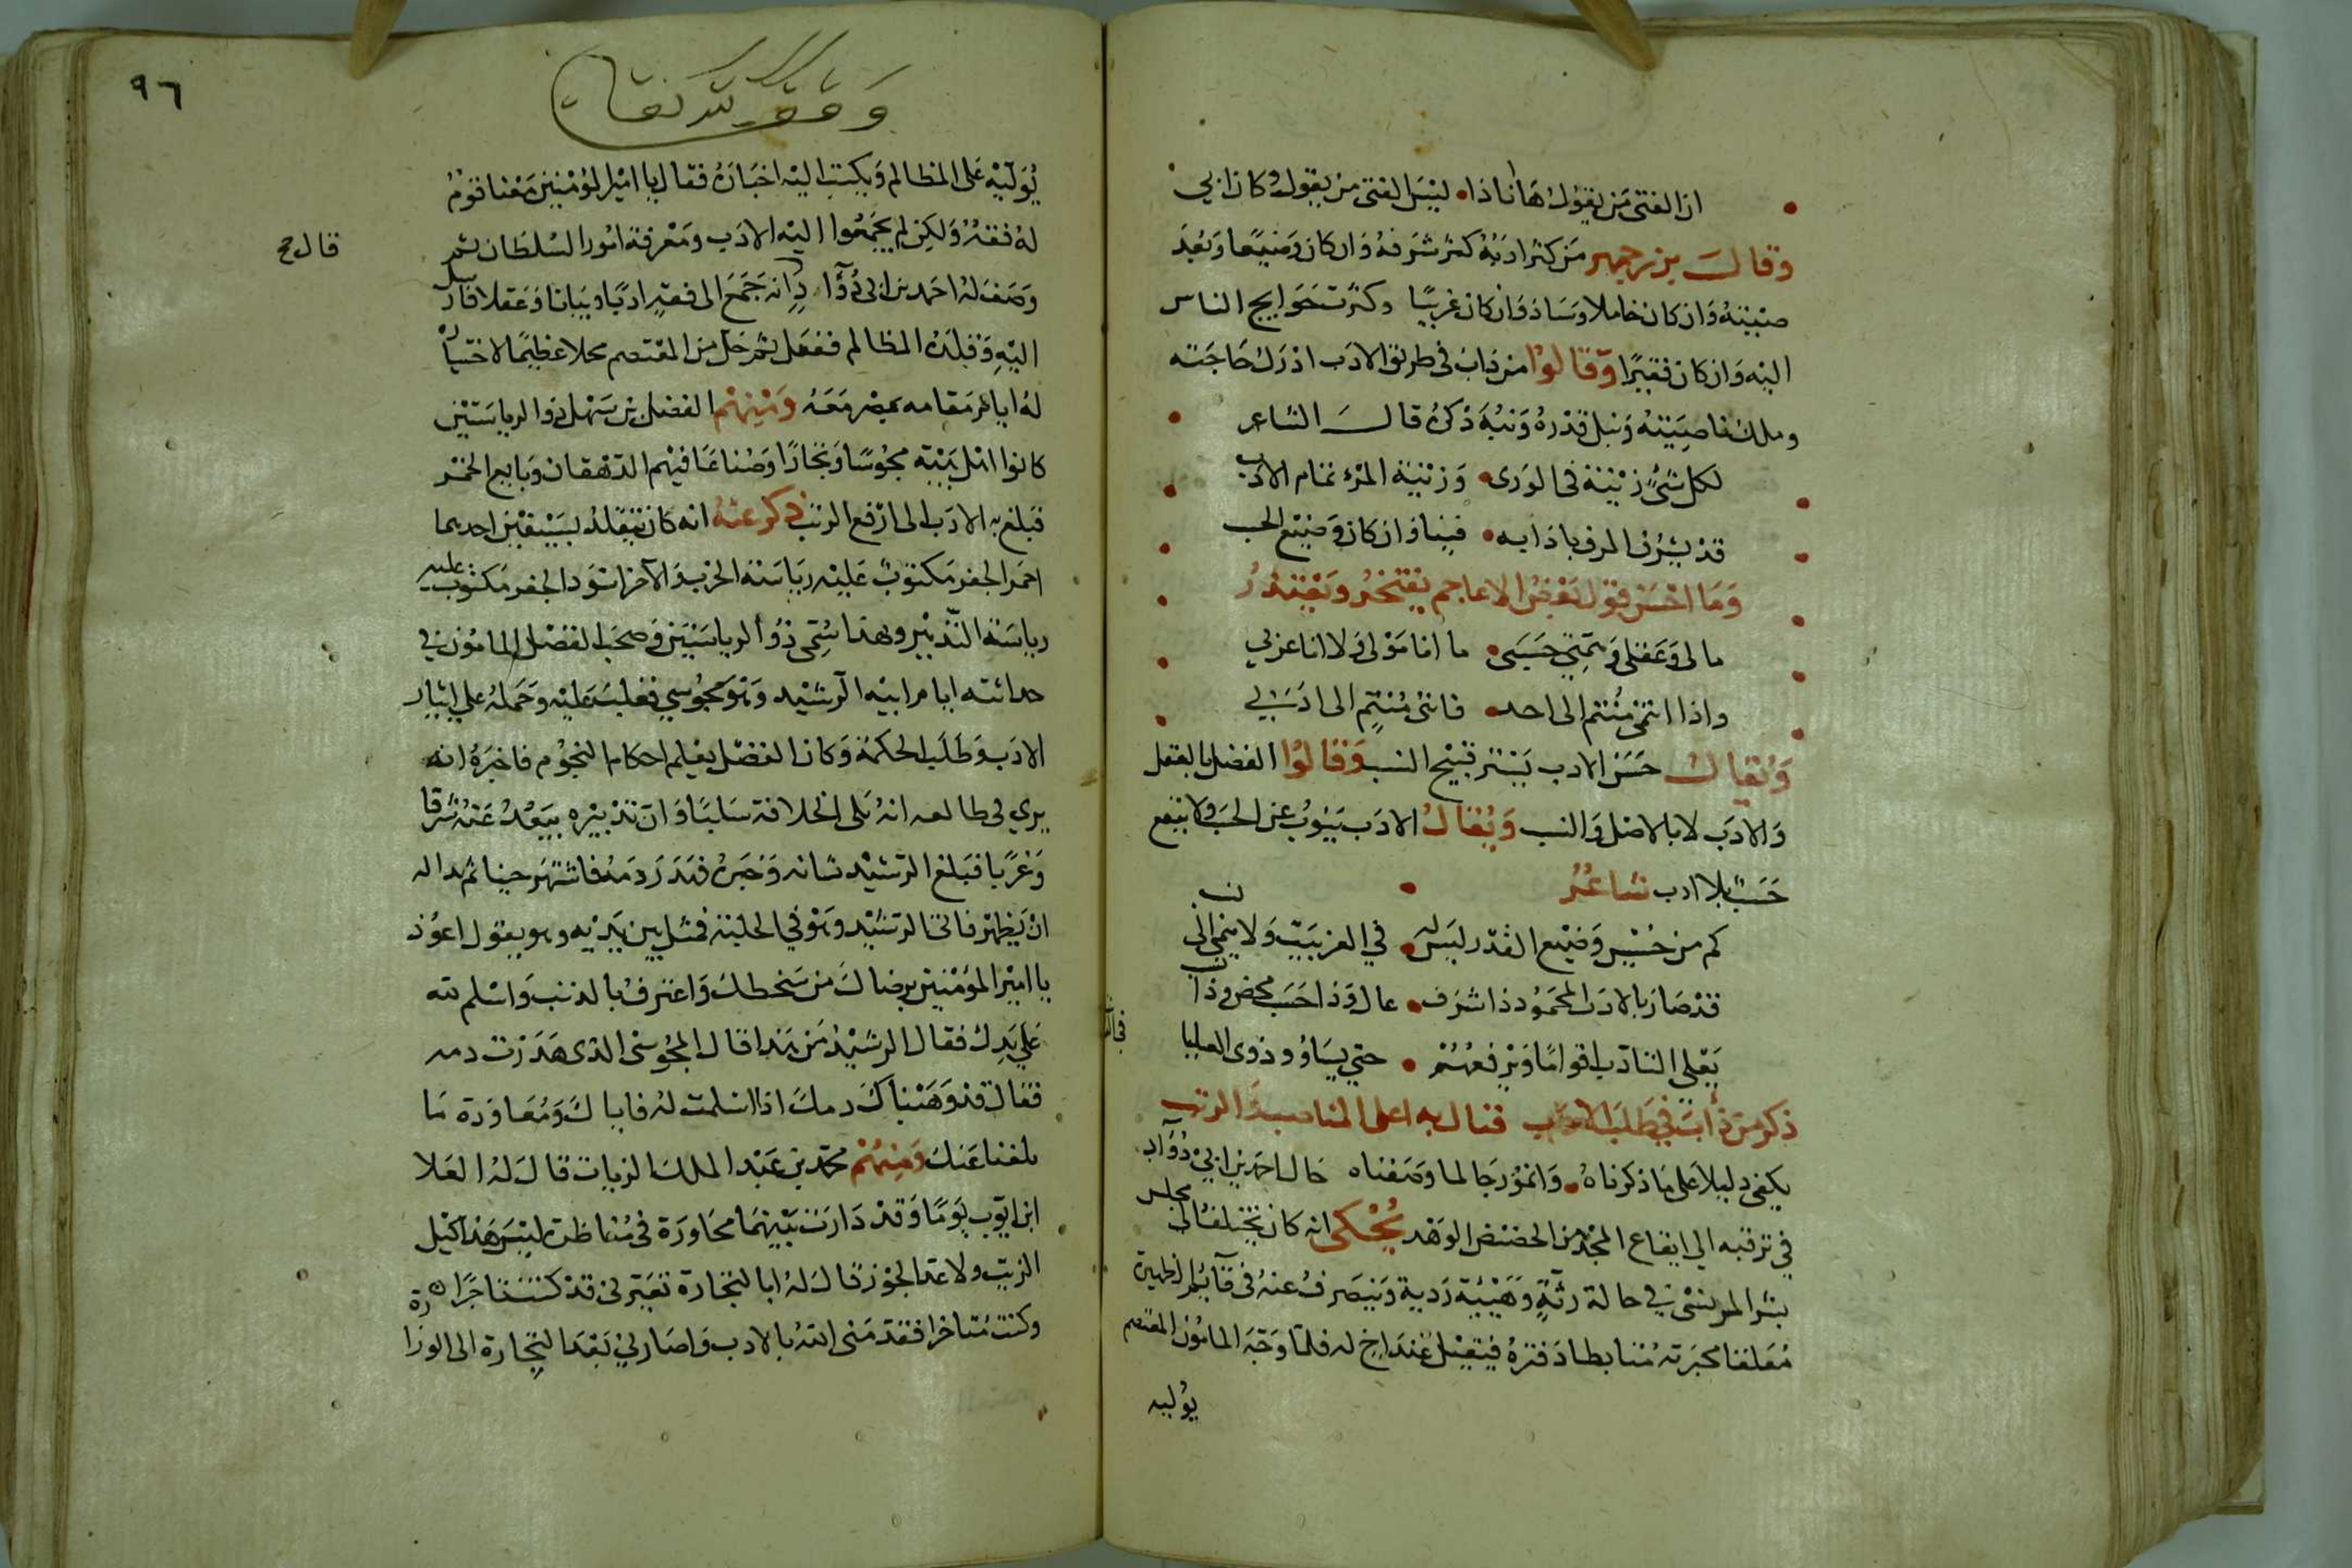 ان الفتى من يقول ها انا ذا ليس الفتى من يقول كان ابي
وقال بزرجمهر من كثر ادبه كثر شرفه وان كان وضيعا وبعد
صيته وان كان خاملا وساد وان كان غريبا وكثرت حوايج الناس
اليه وان كان فقيرا وقالوا من داب في طريق الادب ادرك حاجته
وملك ناصيته ونبل قدره ونبه ذكره قال الشاعر
لكل شيء زينة في الورى وزينة المرء تمام الادب
قد يشرف المرء بادابه فينا وان كان وضيع الحسب
وما احسن قول بعض الاعاجم يفتخر ويعتذر
مالي وعقلي وهمتي حسبي ما انا مولى ولا انا عربي
واذا انتمى منتم الى احد فانني منتم الى ادبي
ويقال حسن الادب يستر قبيح النسب وقالوا الفضل بالعقل
والادب لا بالاصل والنسب ويقال الادب ينوب عن الحسب ولا ينفع
حسب بلا ادب شاعر
كم من خسيس وضيع القدر ليس له في العز بيت ولا ينمى الى نسب
قد صار بالادب المحمود ذا شرف عال وذا حسب محض وذا نسب
يعلي التادب اقواما ويرفعهم حتى يساووا ذوي العليا
ذكر من داب في طلب الادب فنال به اعلى المناصب والرتب
يكفي دليلا على ما ذكرناه وانموذجا لما وصفناه حال احمد بن ابي دؤاد
في ترقيه الى ايفاع المجد من الحضيض الوهد يحكى انه كان يختلف الى مجلس
بشر المريسي في حالة رثة وهيئة ردية وينصرف عنه في قايم الظهيرة
معلقا محبرته متابطا دفتره فيقيل عند اخ له فلما وجه المامون المعتصم
يوليه
٩٦
يوليه على المظالم ويكتب اليه اخباره فقال يا امير المؤمنين معنا قوم
له فقه ولكن لم يجمعوا اليه الادب ومعرفة امور السلطان ثم
قال صح
وصف له احمد بن ابي دؤاد انه جمع الى فقه ادبا وبيانا وعقلا فارسل
اليه وقلده المظالم ففعل ثم حل من المعتصم محلا عظيما لاختياره
له ايام مقامه بمصر معه ومنهم الفضل بن سهل ذو الرياستين
كانوا اهل بيته مجوسا وتجارا وصناعا فيهم الدهقان وبايع الخمر
فبلغ به الادب الى ارفع الرتب ذكر عنه انه كان يتقلد بسيفين احدهما
احمر الجفر مكتوب عليه رياسة الحرب والآخر اسود الجفر مكتوب عليه
رياسة التدبير وبهذا سمي ذو الرياستين وصحب الفضل المامون في
حداثته ايام ابيه الرشيد وهو مجوسي فغلب عليه وحمله على ايثار
الادب وطلب الحكمة وكان الفضل يعلم احكام النجوم فاخبره انه
يرى في طالعه انه يلي الخلافة سلبا وان تدبيره يبعد عنه شرقا
وغربا فبلغ الرشيد شانه وخبره فنذر دمه فاشتهر حينا ثم بدا له
ان يظهر فاتى الرشيد وهو في الحلبة فمثل بين يديه وهو يقول اعوذ
يا امير المؤمنين برضاك من سخطك واعترف بالذنب واسلم لله
على يدك فقال الرشيد من هذا قال المجوسي الذي هدرت دمه
فقال قد وهبناك دمك اذا اسلمت له فاياك ومعاودة ما
بلغنا عنك ومنهم محمد بن عبد الملك الزيات قال له العلا
ابن ايوب يوما وقد دارت بينهما محاورة في مناظرة ليس هذا كيل
الزيت ولا عد الجوز قال له ابالتجارة تعيرني قد كنت تاجرا
وكنت متاخرا فقدمني الله بالادب واصارني بعد التجارة الى الوزارة